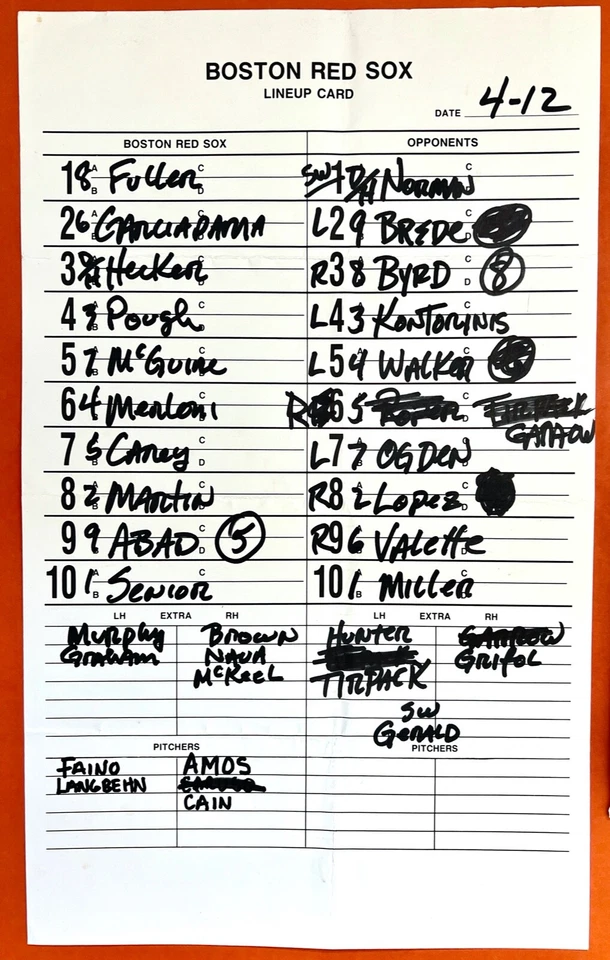 BOSTON RED SOX
LINEUP CARD
DATE 4-12
BOSTON RED SOX OPPONENTS
1 8 A B Fuller C D SW 1 DH NORMAN C
2 6 A B GARCIAPARRA L 2 9 BREDE C D
3 DH Hecker C D R 3 8 A B BYRD C D 8
4 3 A B Pough C D L 4 3 A KONTORINIS C
5 7 A B McGuire C D L 5 4 A WALKER C D
6 4 A B Merloni C D R 6 5 GARROW
7 5 A B Carey C D L 7 7 A B OGDEN C D
8 2 A B MARTIN C D R 8 2 A B LOPEZ C D
9 9 A B ABAD C D 5 R 9 6 A B Valette C D
10 1 A B SENIOR C D 10 1 A B MILLER C D
LH EXTRA RH LH EXTRA RH
MURPHY BROWN HUNTER GARROW
GRAHAM NAVA GRIFOL
McKEEL TIRPACK
SW
GERALD
PITCHERS PITCHERS
FAINO AMOS
LANGBEHN
CAIN